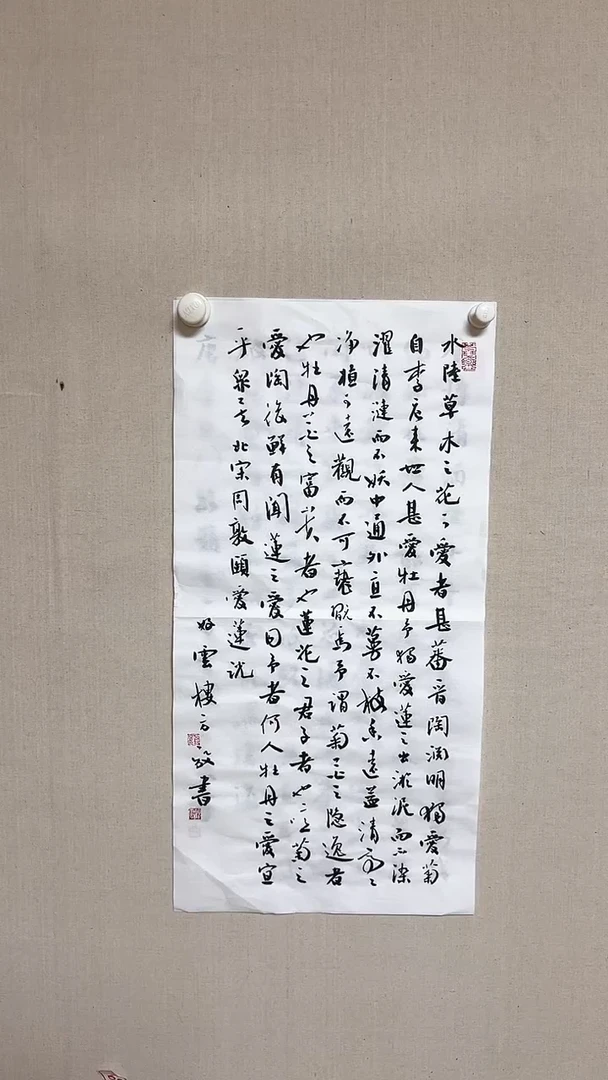 水陸草木之花可愛者甚蕃晉陶淵明獨愛菊
自李唐来世人甚愛牡丹予獨愛蓮之出淤泥而不染
濯清漣而不妖中通外直不蔓不枝香遠益清亭亭
净植可遠觀而不可褻玩焉予謂菊花之隐逸者
也牡丹花之富貴者也蓮花之君子者也噫菊之
愛陶後鮮有聞蓮之愛同予者何人牡丹之愛宜
乎衆矣北宋周敦頤愛蓮说
雲樓方書